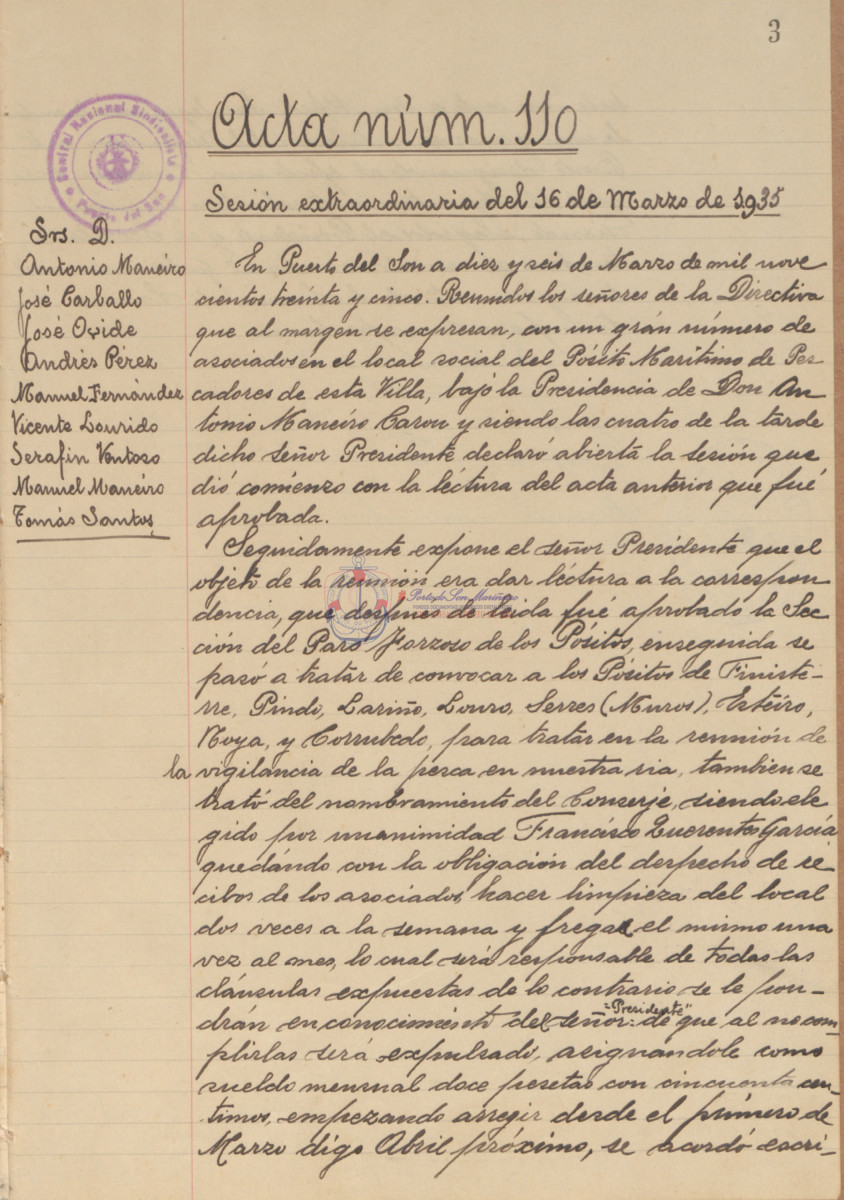 3
Acta núm. 110
Sesión extraordinaria del 16 de Marzo de 1935
Central Nacional Sindicalista
Puerto del Son
Srs. D.
Antonio Maneiro
José Carballo
José Ovide
Andrés Pérez
Manuel Fernández
Vicente Lourido
Serafín Ventoso
Manuel Maneiro
Tomás Santos
En Puerto del Son a diez y seis de Marzo de mil nove
cientos treinta y cinco. Reunidos los señores de la Directiva
que al margen se expresan, con un grán número de
asociados en el local social del Pósito Marítimo de Pes
cadores de esta Villa, bajo la Presidencia de Don An
tonio Maneiro Carou y siendo las cuatro de la tarde
dicho señor Presidente declaró abierta la sesión que
dió comienzo con la léctura del acta anterior que fué
aprobada.
Seguidamente expone el señor Presidente que el
objeto de la reunión era dar léctura a la correspon
dencia, que despues de leida fué aprobado la Sec
ción del Paro Forzoso de los Pósitos, enseguida se
pasó a tratar de convocar a los Pósitos de Finiste-
rre, Pindo, Lariño, Louro, Serres (Muros), Esteiro,
Noya, y Corrubedo, para tratar en la reunión de
la vigilancia de la pesca en nuestra ria, tambien se
trató del nombramiento del Conserje, siendo ele
gido por unanimidad Francisco Querentes García
quedándo con la obligación del despecho de re
cibos de los asociados, hacer limpieza del local
dos veces a la semana y fregar el mismo una
vez al mes, lo cual será responsable de todas las
cláusulas expuestas de lo contrario se le pon-
drán en conocimiento del señor "Presidente" de que al nocom-
plirlas será expulsado, asignandole como
sueldo mensual doce pesetas con cincuenta cen-
timos, empezando arregir desde el primero de
Marzo digo Abril próximo, se acordó escri-
Porto do Son Mariñeiro